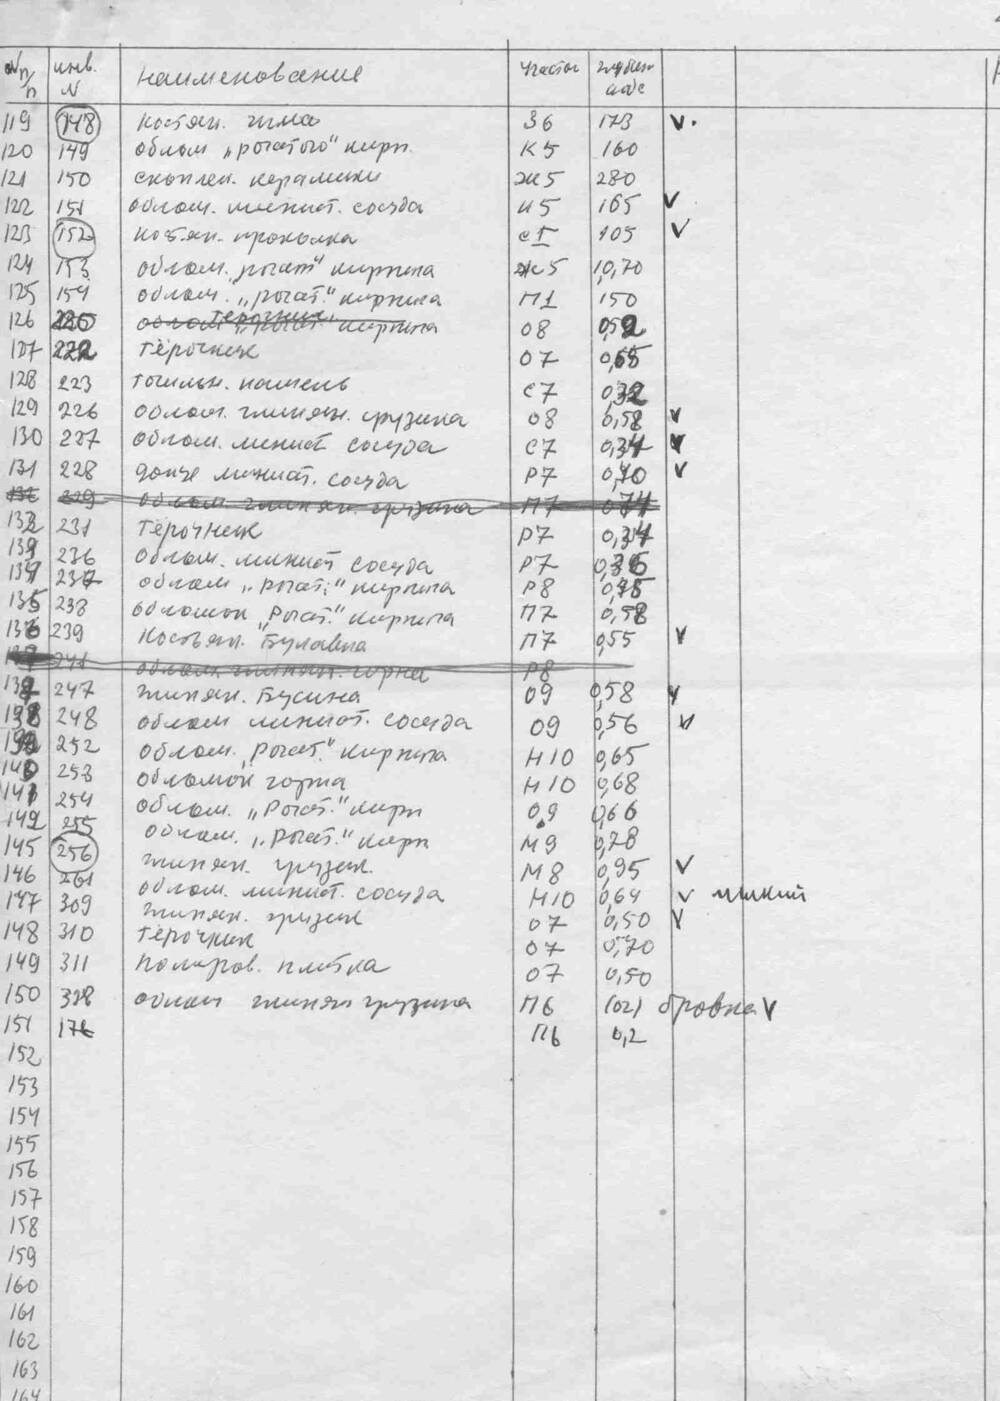 № п/п инв. N наименование участок глубин. абс
119 148 костян. игла З6 173 v.
120 149 облом „рогатого" кирп. К5 160
121 150 скоплен. керамики Ж5 280
122 151 облом. миниат. сосуда И5 165 v
123 152 костян. проколка 105 v
124 153 облом. „рогат" кирпича Ж5 10,70
125 154 облом. „рогат." кирпича П1 150
126 тёрочник О8
127 222 тёрочник О7 0,65
128 223 точильн. камень С7
129 226 облом. глинян. грузика О8 0,58 v
130 227 облом. миниат сосуда С7 0,34 v
131 228 донце миниат. сосуда Р7 v
132 229 облом. глинян. грузика П7
132 231 тёрочник Р7 0,34
133 236 облом. миниат сосуда Р7
134 237 облом „рогат." кирпича Р8
135 238 обломок „рогат." кирпича П7 0,58
136 239 костян. булавка П7 0,55 v
137 241 облом. глинян. горна Р8
137 247 глинян. бусина О9 0,58 v
138 248 облом миниат. сосуда О9 0,56 v
139 252 облом. „рогат." кирпича Н10 0,65
140 253 обломок горна Н10 0,68
141 254 облом. „Рогат." кирп О.9 0,66
142 255 облом. „рогат." кирп М9 0,78
145 256 глинян. грузик. М8 0,95 v
146 261 облом. миниат. сосуда Н10 0,64 v
147 309 глинян. грузик О7 0,50 v
148 310 тёрочник О7 0,70
149 311 полиров. плитка О7 0,50
150 328 облом глинян грузика П6 бровка v
151 176 П6 0,2
152
153
154
155
156
157
158
159
160
161
162
163
164